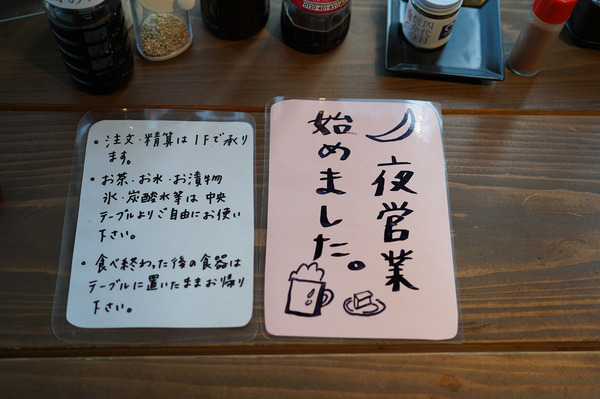 ・注文・精算は1Fで承り
ます。
・お茶・お水・お漬物
氷・炭酸水等は中央
テーブルよりご自由にお使い
下さい。
・食べ終わった後の食器は
テーブルに置いたままお帰り
下さい。
夜営業
始めました。